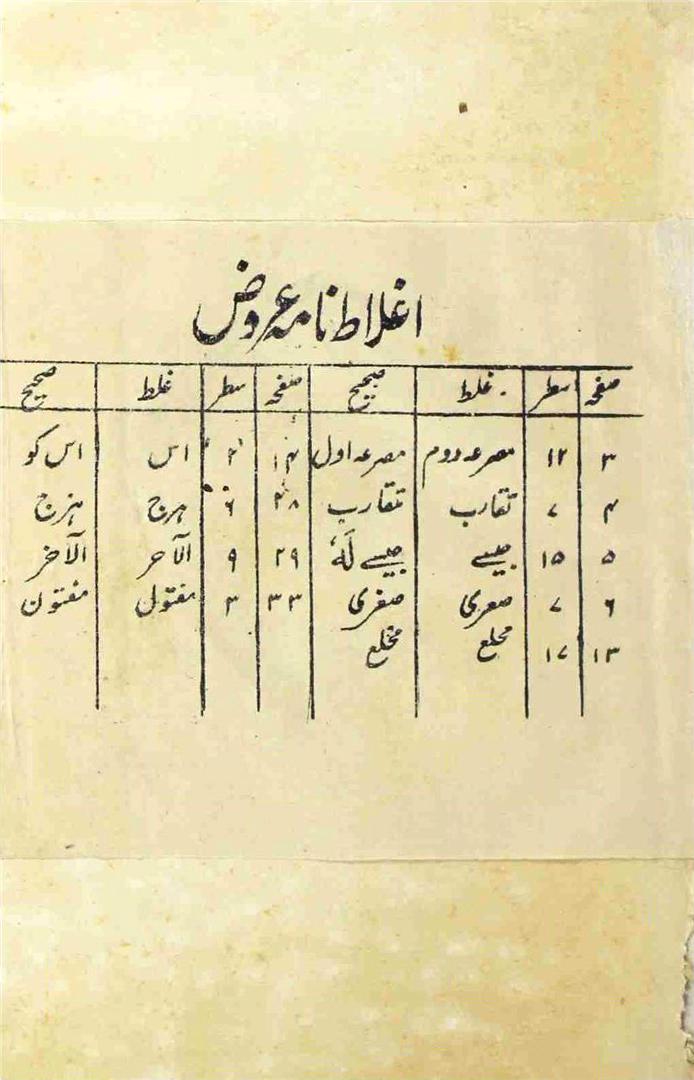 اغلاط نامہ عروض
صفحہ سطر غلط صحیح صفحہ سطر غلط صحیح
۳ ۱۲ مصرعہ دوم مصرعہ اول ۱۴ ۲ اس اس کو
۴ ۷ تقارب متقارب ۲۸ ۶ ہرج ہزج
۵ ۱۵ جیسے جیسے لَہٗ ۲۹ ۹ الآحر الآخر
۶ ۷ صعری صغری ۳۳ ۳ مفتول مفتون
۱۳ ۱۷ محلع مخلع